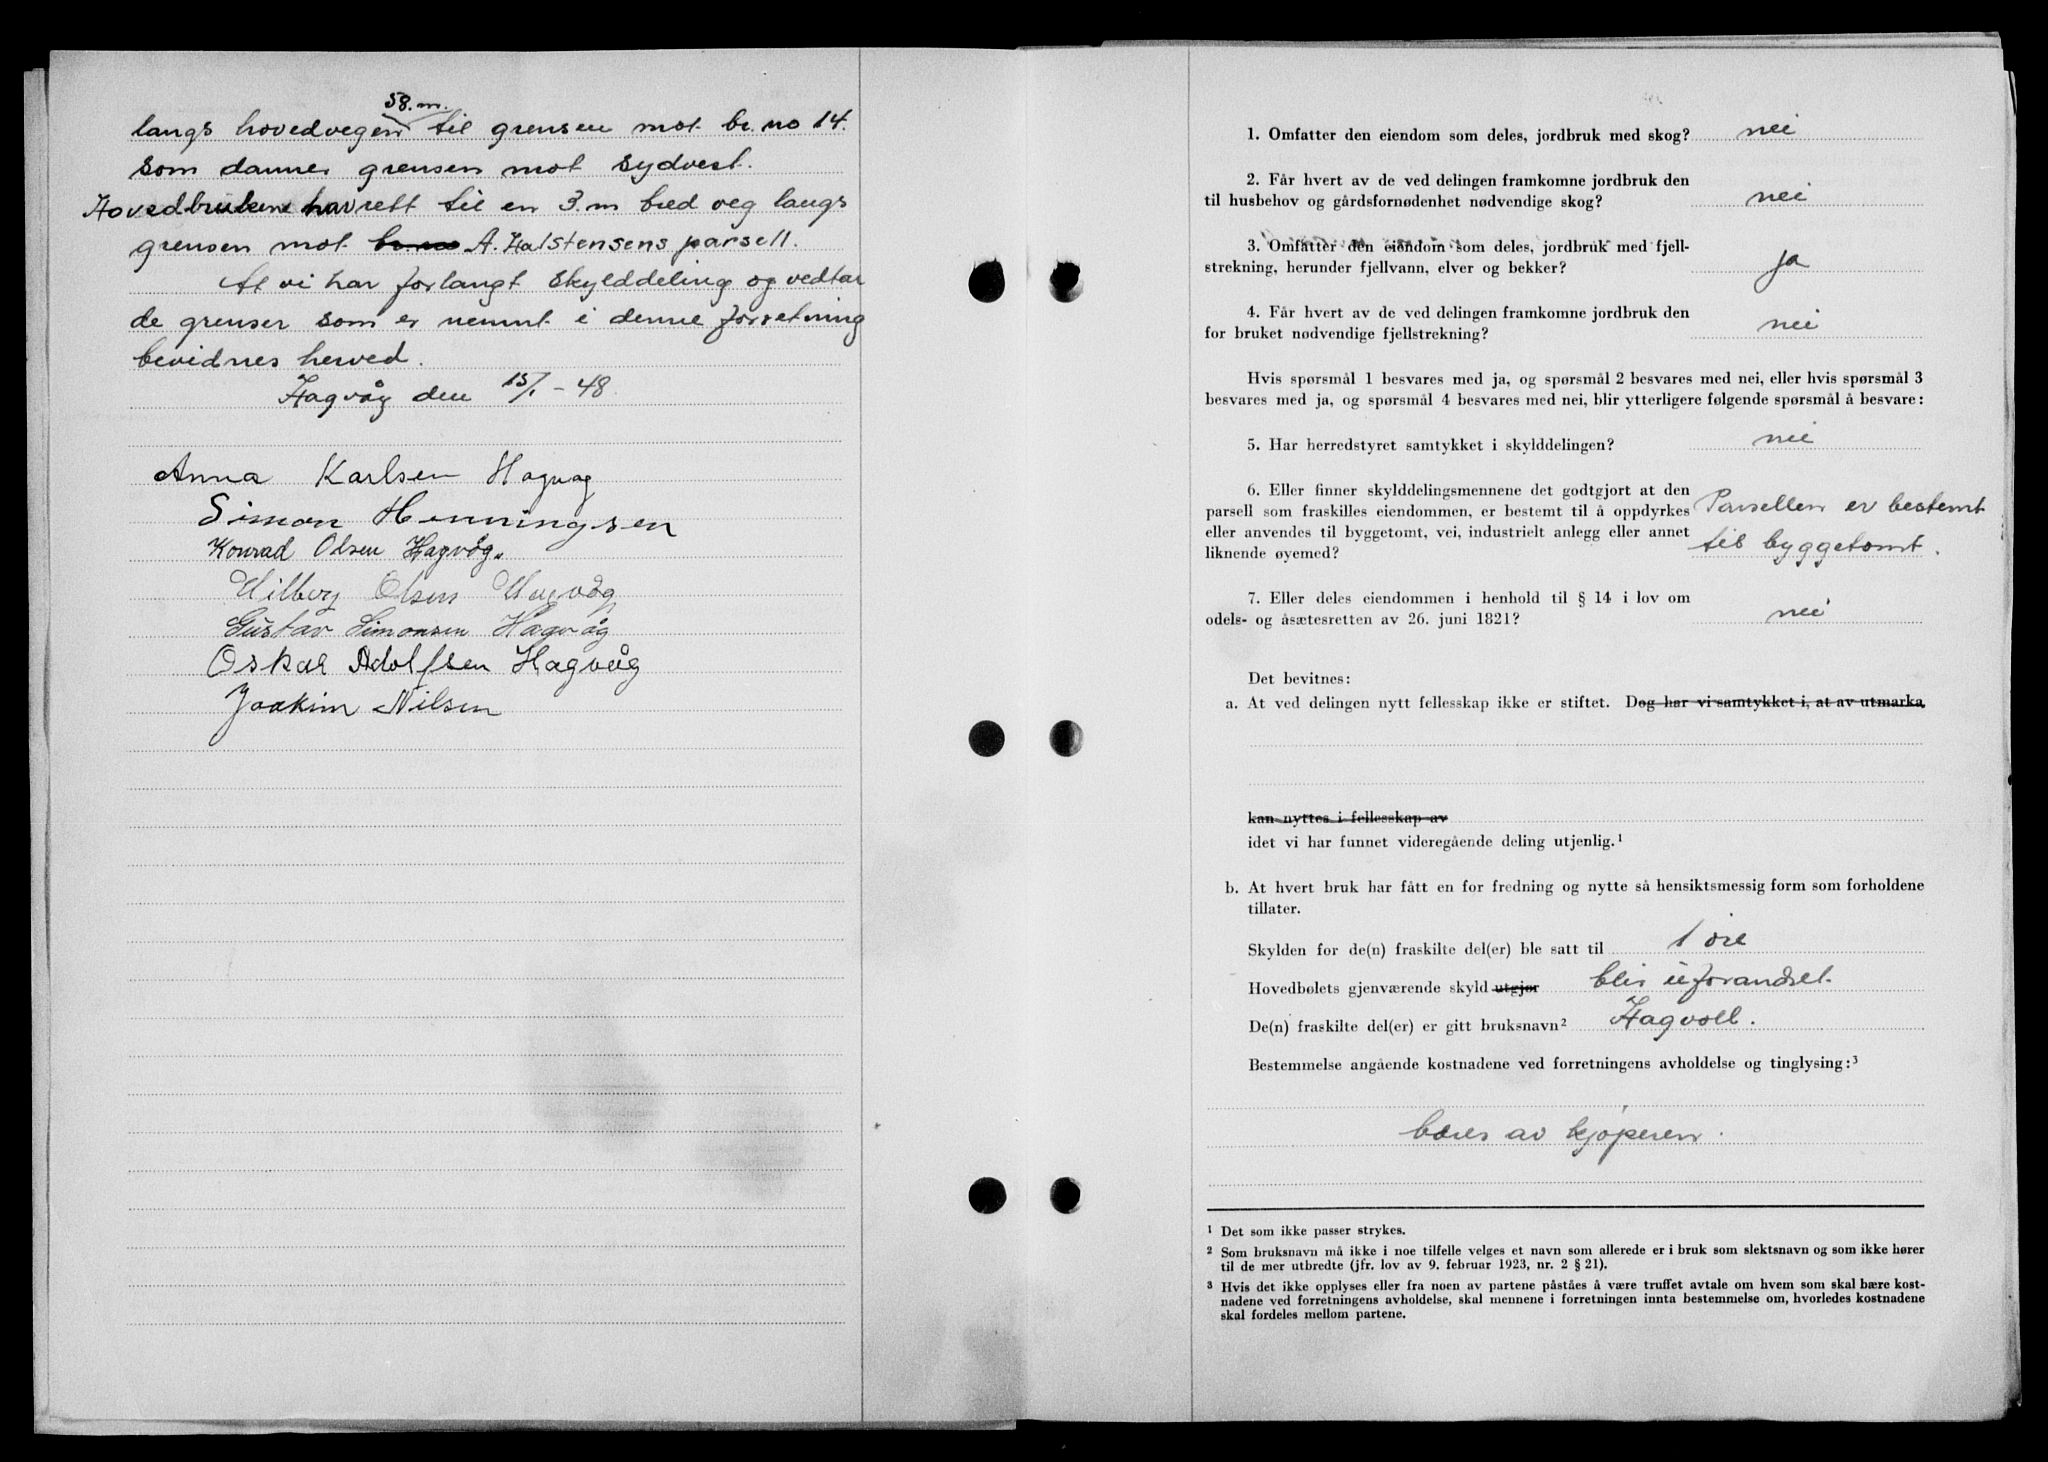 58. m.
langs hovedvegen til grensen mot br. no 14.
som danner grensen mot sydvest.
Hovedbruken har rett til en 3. m bred veg langs
grensen mot br. no A. Halstensens parsell.
At vi har forlangt skylddeling og vedtar
de grenser som er nemnt i denne forretning
bevidnes herved.
Hagvåg den 15/1 - 48.
Anna Karlsen Hagvag
Simon Henningsen
Konrad Olsen Hagvåg.
Olsen Hagvåg
Gustav Simonsen Hagvåg
Oskar Adolfsen Hagvåg
Joakim Nilsen
1. Omfatter den eiendom som deles, jordbruk med skog? nei
2. Får hvert av de ved delingen framkomne jordbruk den
til husbehov og gårdsfornødenhet nødvendige skog? nei
3. Omfatter den eiendom som deles, jordbruk med fjell-
strekning, herunder fjellvann, elver og bekker? ja
4. Får hvert av de ved delingen framkomne jordbruk den
for bruket nødvendige fjellstrekning? nei
Hvis spørsmål 1 besvares med ja, og spørsmål 2 besvares med nei, eller hvis spørsmål 3
besvares med ja, og spørsmål 4 besvares med nei, blir ytterligere følgende spørsmål å besvare:
5. Har herredstyret samtykket i skylddelingen? nei
6. Eller finner skylddelingsmennene det godtgjort at den
parsell som fraskilles eiendommen, er bestemt til å oppdyrkes Parsellen er bestemt
eller anvendes til byggetomt, vei, industrielt anlegg eller annet
liknende øyemed? til byggetomt.
7. Eller deles eiendommen i henhold til § 14 i lov om
odels- og åsætesretten av 26. juni 1821? nei
Det bevitnes:
a. At ved delingen nytt fellesskap ikke er stiftet. Dog har vi samtykket i, at av utmarka
kan nyttes i fellesskap av
idet vi har funnet videregående deling utjenlig.¹
b. At hvert bruk har fått en for fredning og nytte så hensiktsmessig form som forholdene
tillater.
Skylden for de(n) fraskilte del(er) ble satt til 1 øre
Hovedbølets gjenværende skyld utgjør blir uforandret.
De(n) fraskilte del(er) er gitt bruksnavn² Hagvoll.
Bestemmelse angående kostnadene ved forretningens avholdelse og tinglysing:³
bæres av kjøperen.
¹ Det som ikke passer strykes.
² Som bruksnavn må ikke i noe tilfelle velges et navn som allerede er i bruk som slektsnavn og som ikke hører
til de mer utbredte (jfr. lov av 9. februar 1923, nr. 2 § 21).
³ Hvis det ikke opplyses eller fra noen av partene påståes å være truffet avtale om hvem som skal bære kost-
nadene ved forretningens avholdelse, skal mennene i forretningen innta bestemmelse om, hvorledes kostnadene
skal fordeles mellom partene.